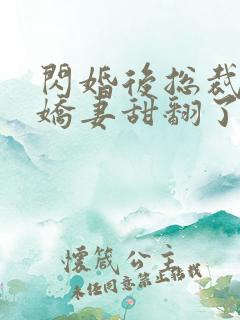 閃婚後總裁
嬌妻甜翻了
懷箴公主
未經同意禁止轉載